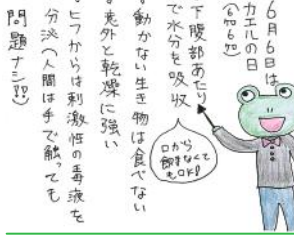 6月6日は
カエルの日
(6ｹﾛ6ｹﾛ)
下腹部あたり
で水分を吸収
口から
飲まなくて
もOK!
動かない生き物は食べない
意外と乾燥に強い
ヒフからは刺激性の毒液を
分泌(人間は手で触っても
問題ナシ!!)